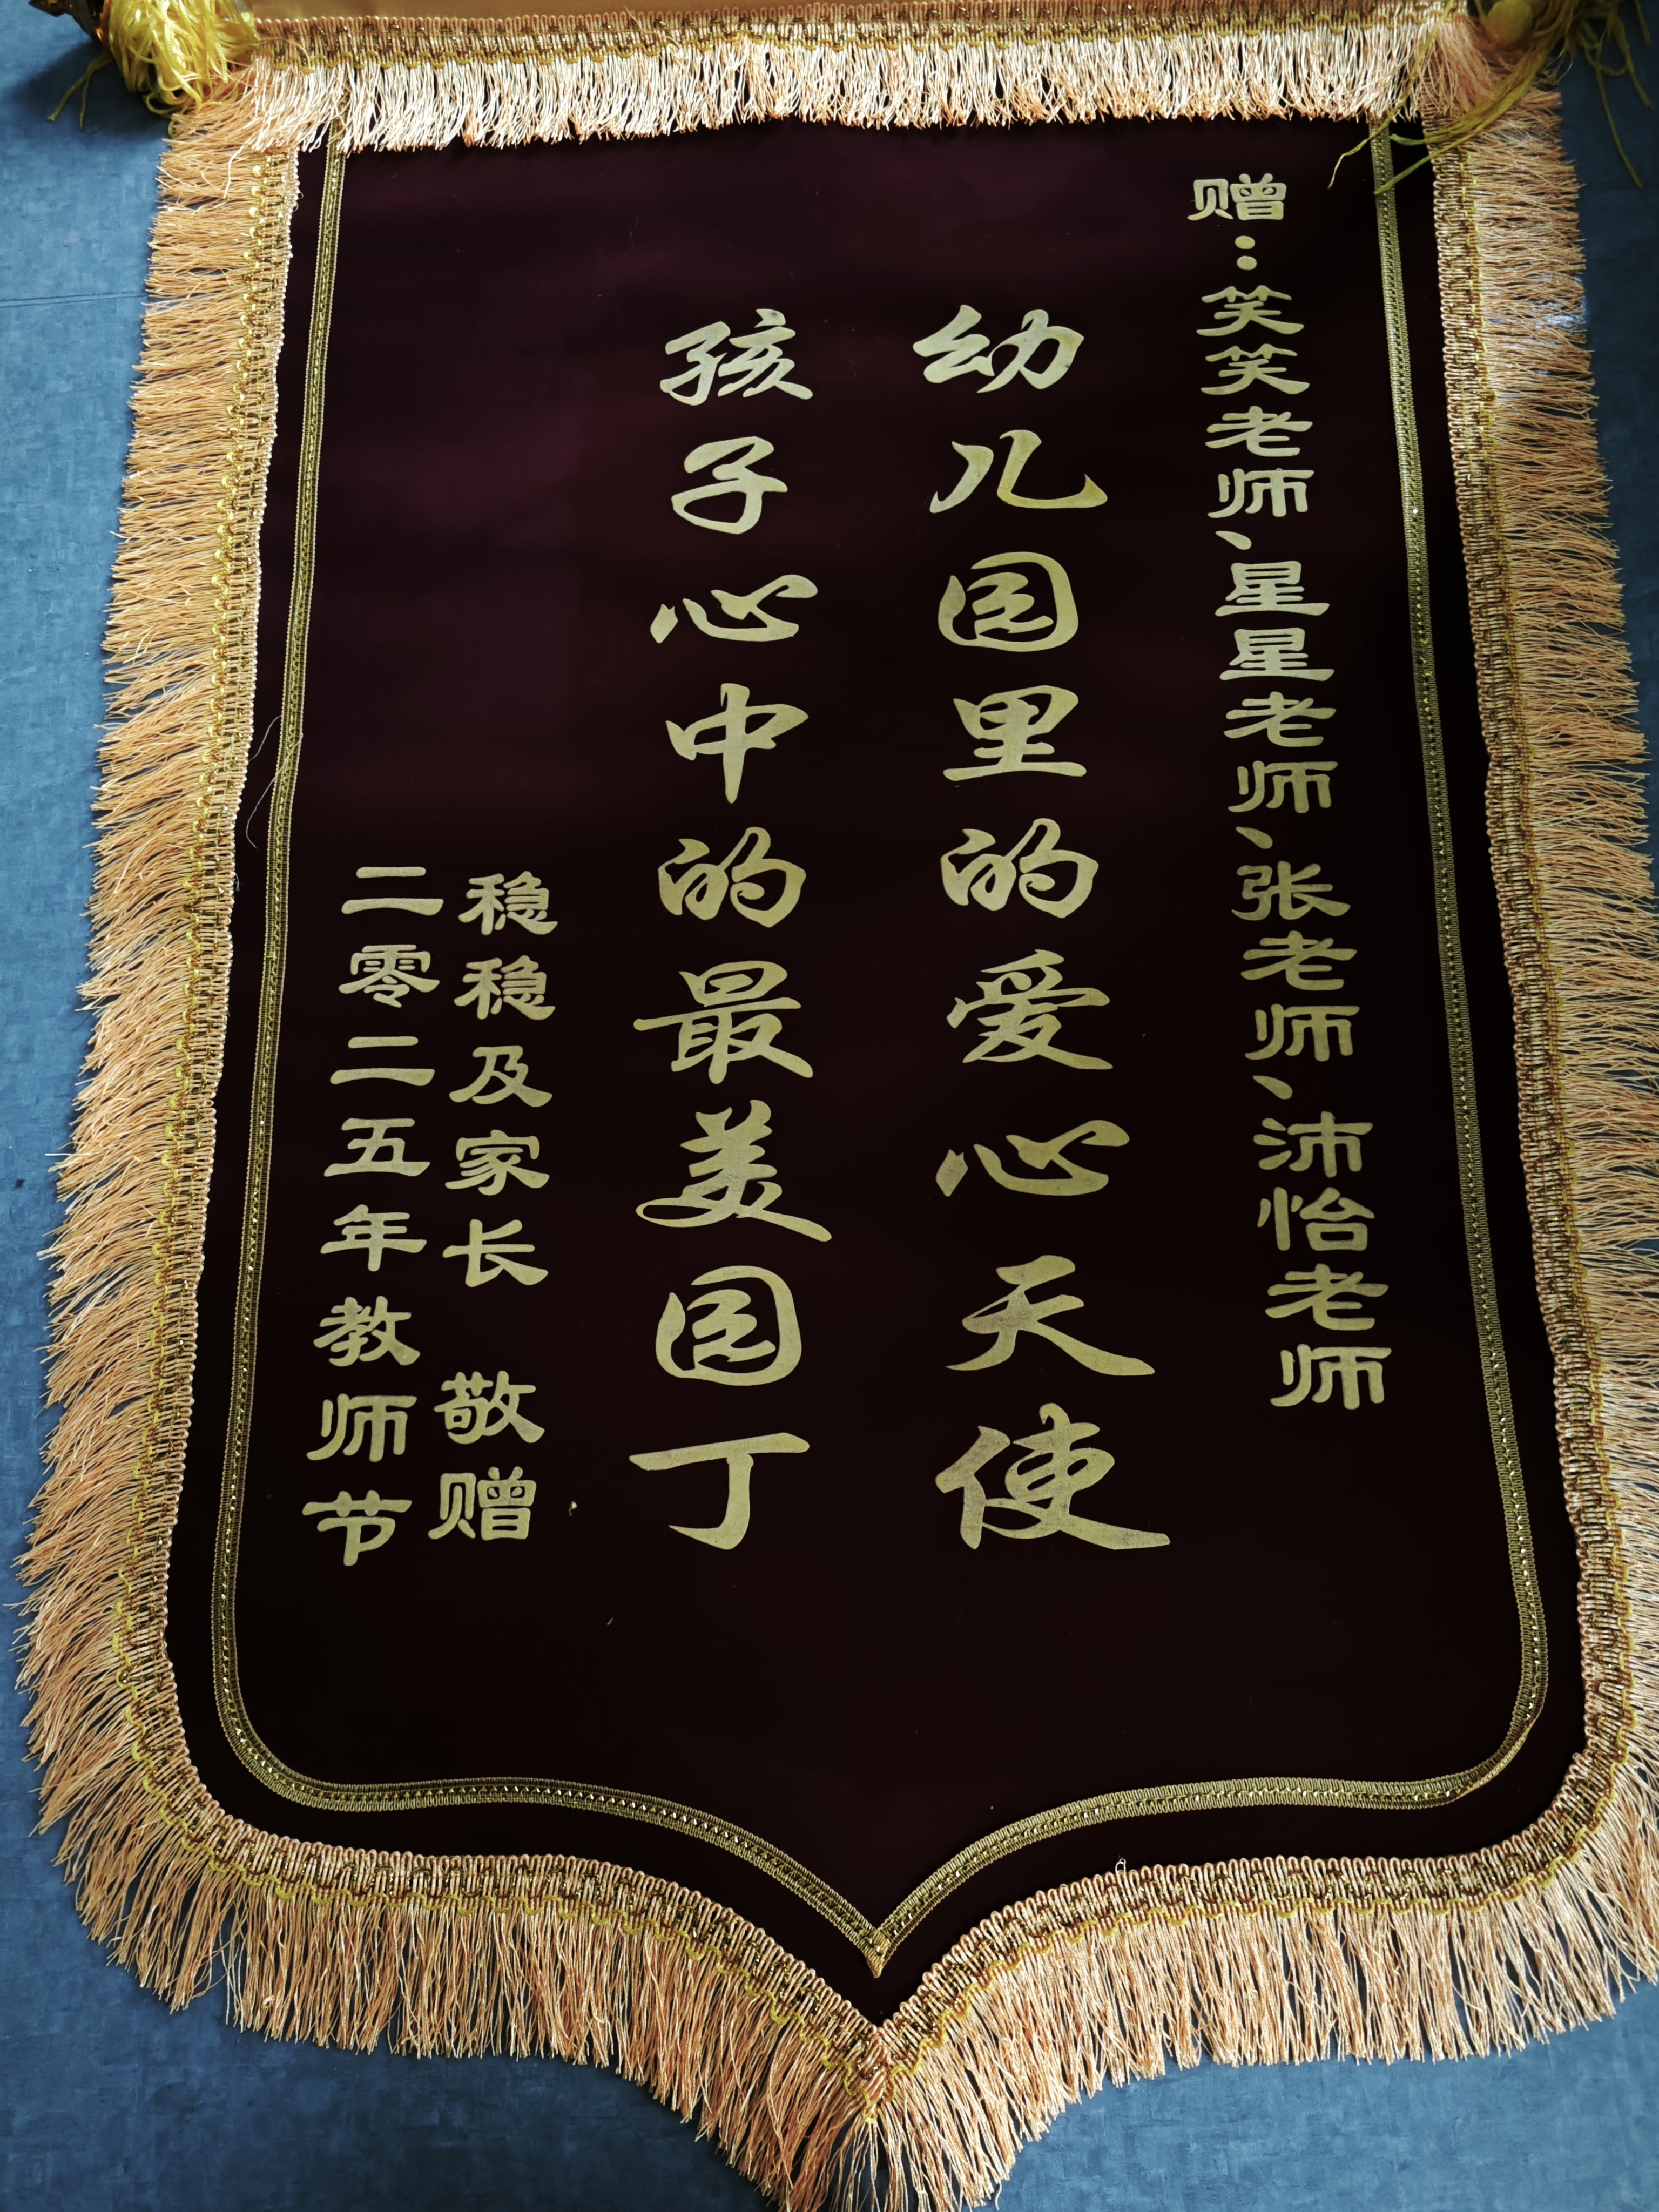 赠：笑笑老师、星星老师、张老师、沛怡老师
幼儿园里的爱心天使
孩子心中的最美园丁
稳稳及家长 敬赠
二零二五年教师节